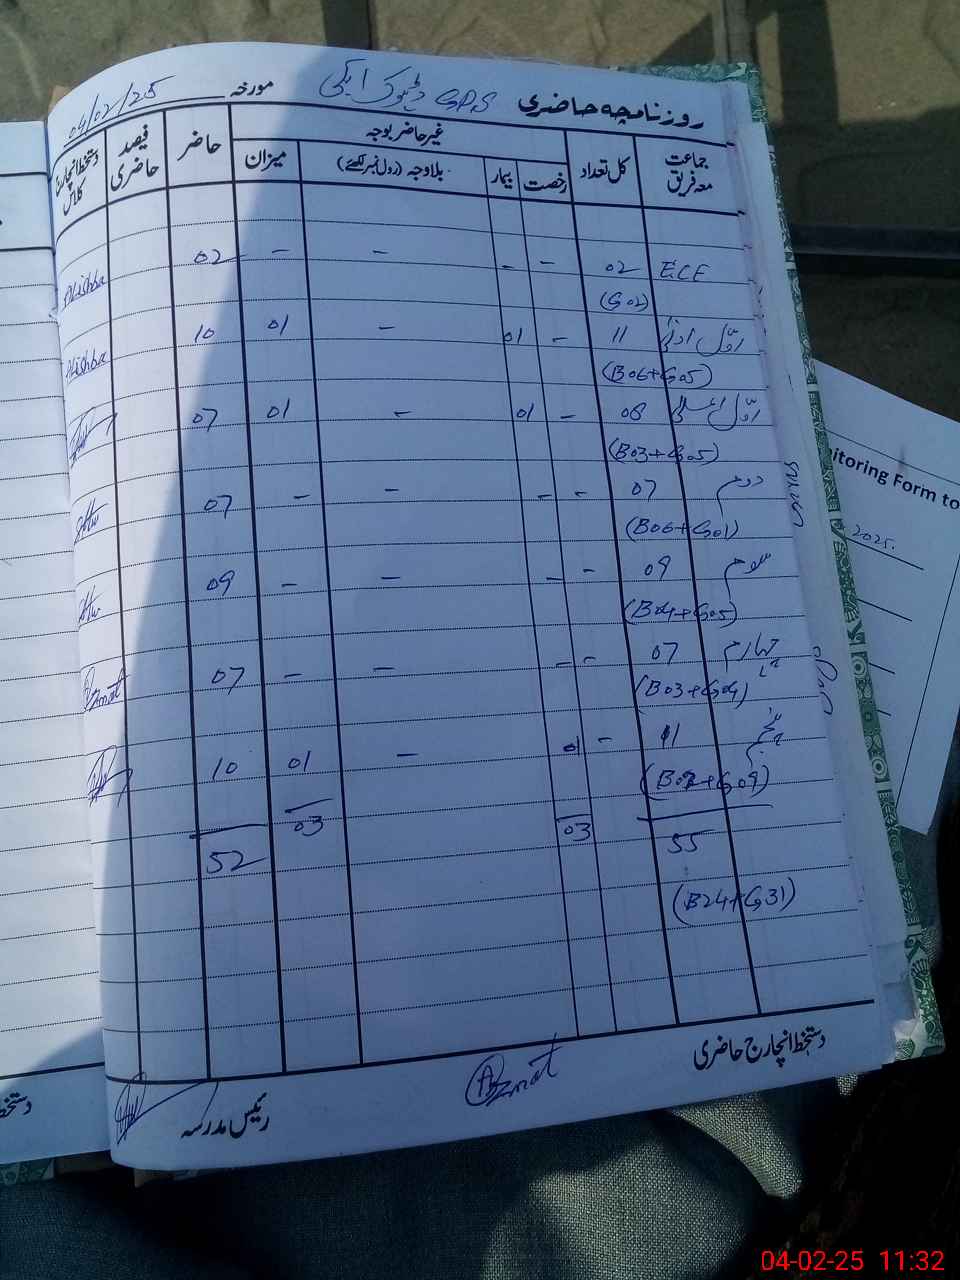 روزنامچہ حاضری GPS ڈھوک مورخہ 04/02/25
جماعت معہ فریق کل تعداد غیر حاضر بوجہ حاضر فیصد حاضری دستخط انچارج کلاس
رخصت بیمار بلاوجہ (رول نمبر لکھئے) میزان
ECE 02 - - - - 02 Alishba
(G02)
اوّل ادنیٰ 11 - 01 - 01 10 Alishba
(B06+G05)
اوّل اعلیٰ 08 - 01 - 01 07
(B03+G05)
دوم 07 - - - - 07
(B06+G01)
سوم 09 - - - - 09
(B04+G05)
چہارم 07 - - - - 07 Azmat
(B03+G04)
پنجم 11 - 01 - 01 10
(B02+G09)
55 03 03 52
(B24+G31)
دستخط انچارج حاضری Azmat رئیس مدرسہ
nitoring Form to
2025.
04-02-25 11:32